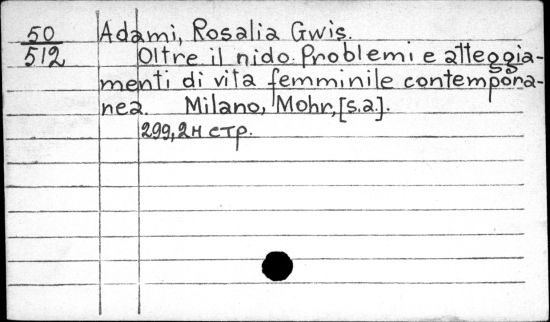 50 Adami, Rosalia Gwis.
512 Oltre il nido. Problemi e atteggia-
menti di vita femminile contempora-
nea. Milano, Mohr, [s.a.].
299, 2н стр.